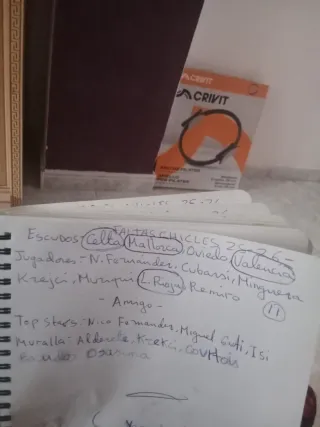 CRIVIT
CRIVIT
FALTAS CHICLES 25-26-
ESCUDOS: Celta Mallorca Oviedo Valencia
Jugadores:- N. Fernandes, Cubarsi, Mingueza
Krejci, Muriqi L. Rioja Remiro
11
- Amigo -
Top Stars:- Nico Fernandes, Miguel Guti, Isi
Muralla: Alderete, Krejci, Courtois
Escudos Osasuna